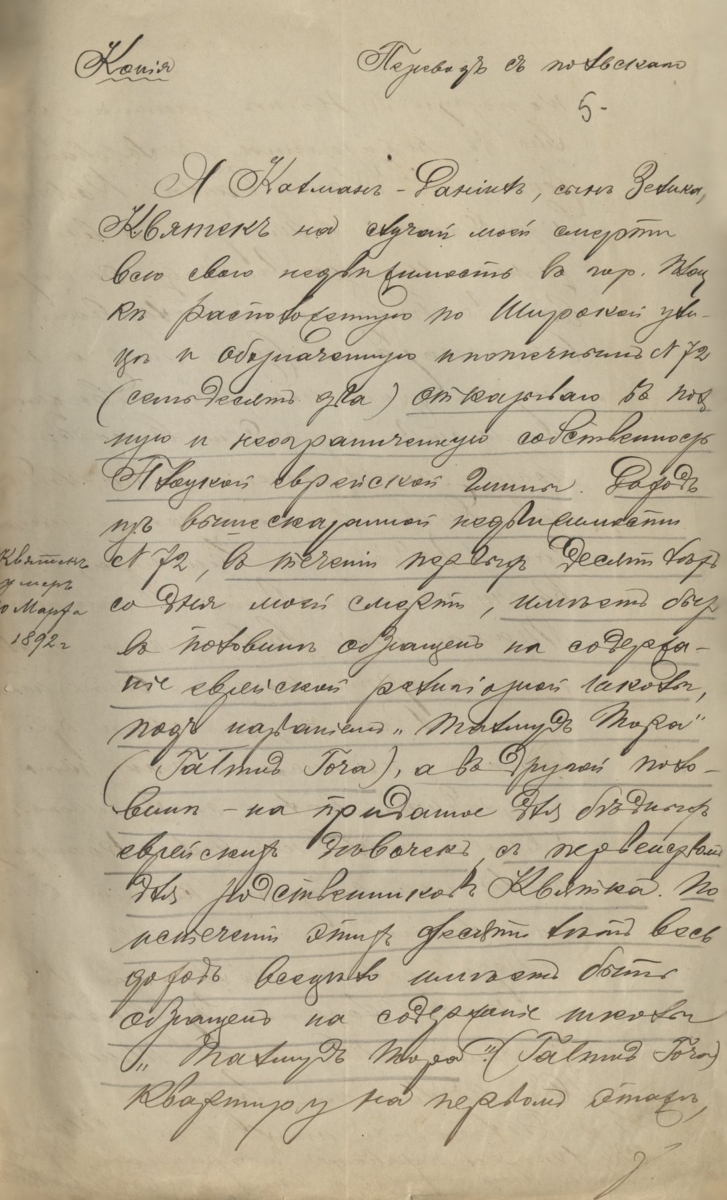 Копія
Переводъ съ польскаго
5-
Я Калманъ-Даніилъ, сынъ Зелика,
Квятекъ на случай моей смерти
всю свою недвижимость въ гор. Плоц
кѣ расположенную по Широкой ули-
цѣ и обозначенную ипотечнымъ N 72
(семьдесятъ два) отказываю въ пол
ную и неограниченную собственность
Плоцкой еврейской Гмины. Доходъ
изъ вышесказанной недвижимости
N 72, въ теченіи первыхъ Десяти лѣтъ
со дня моей смерти, имѣетъ быть
въ половинѣ обращенъ на содержа-
ніе еврейской религіозной школы,
подъ названіемъ „Талмудъ Тора"
(Talmud Tora), а въ другой поло-
винѣ - на приданое для бѣдныхъ
еврейскихъ дѣвочекъ съ первенствомъ
для родственниковъ Квятка. По
истеченіи этихъ десяти лѣтъ весь
доходъ всецѣло имѣетъ быть
обращенъ на содержаніе школы
„Талмудъ Тора". (Talmud Tora)
Квартиру на первомъ этажѣ,
Квятекъ
умеръ
Марта
1892 г